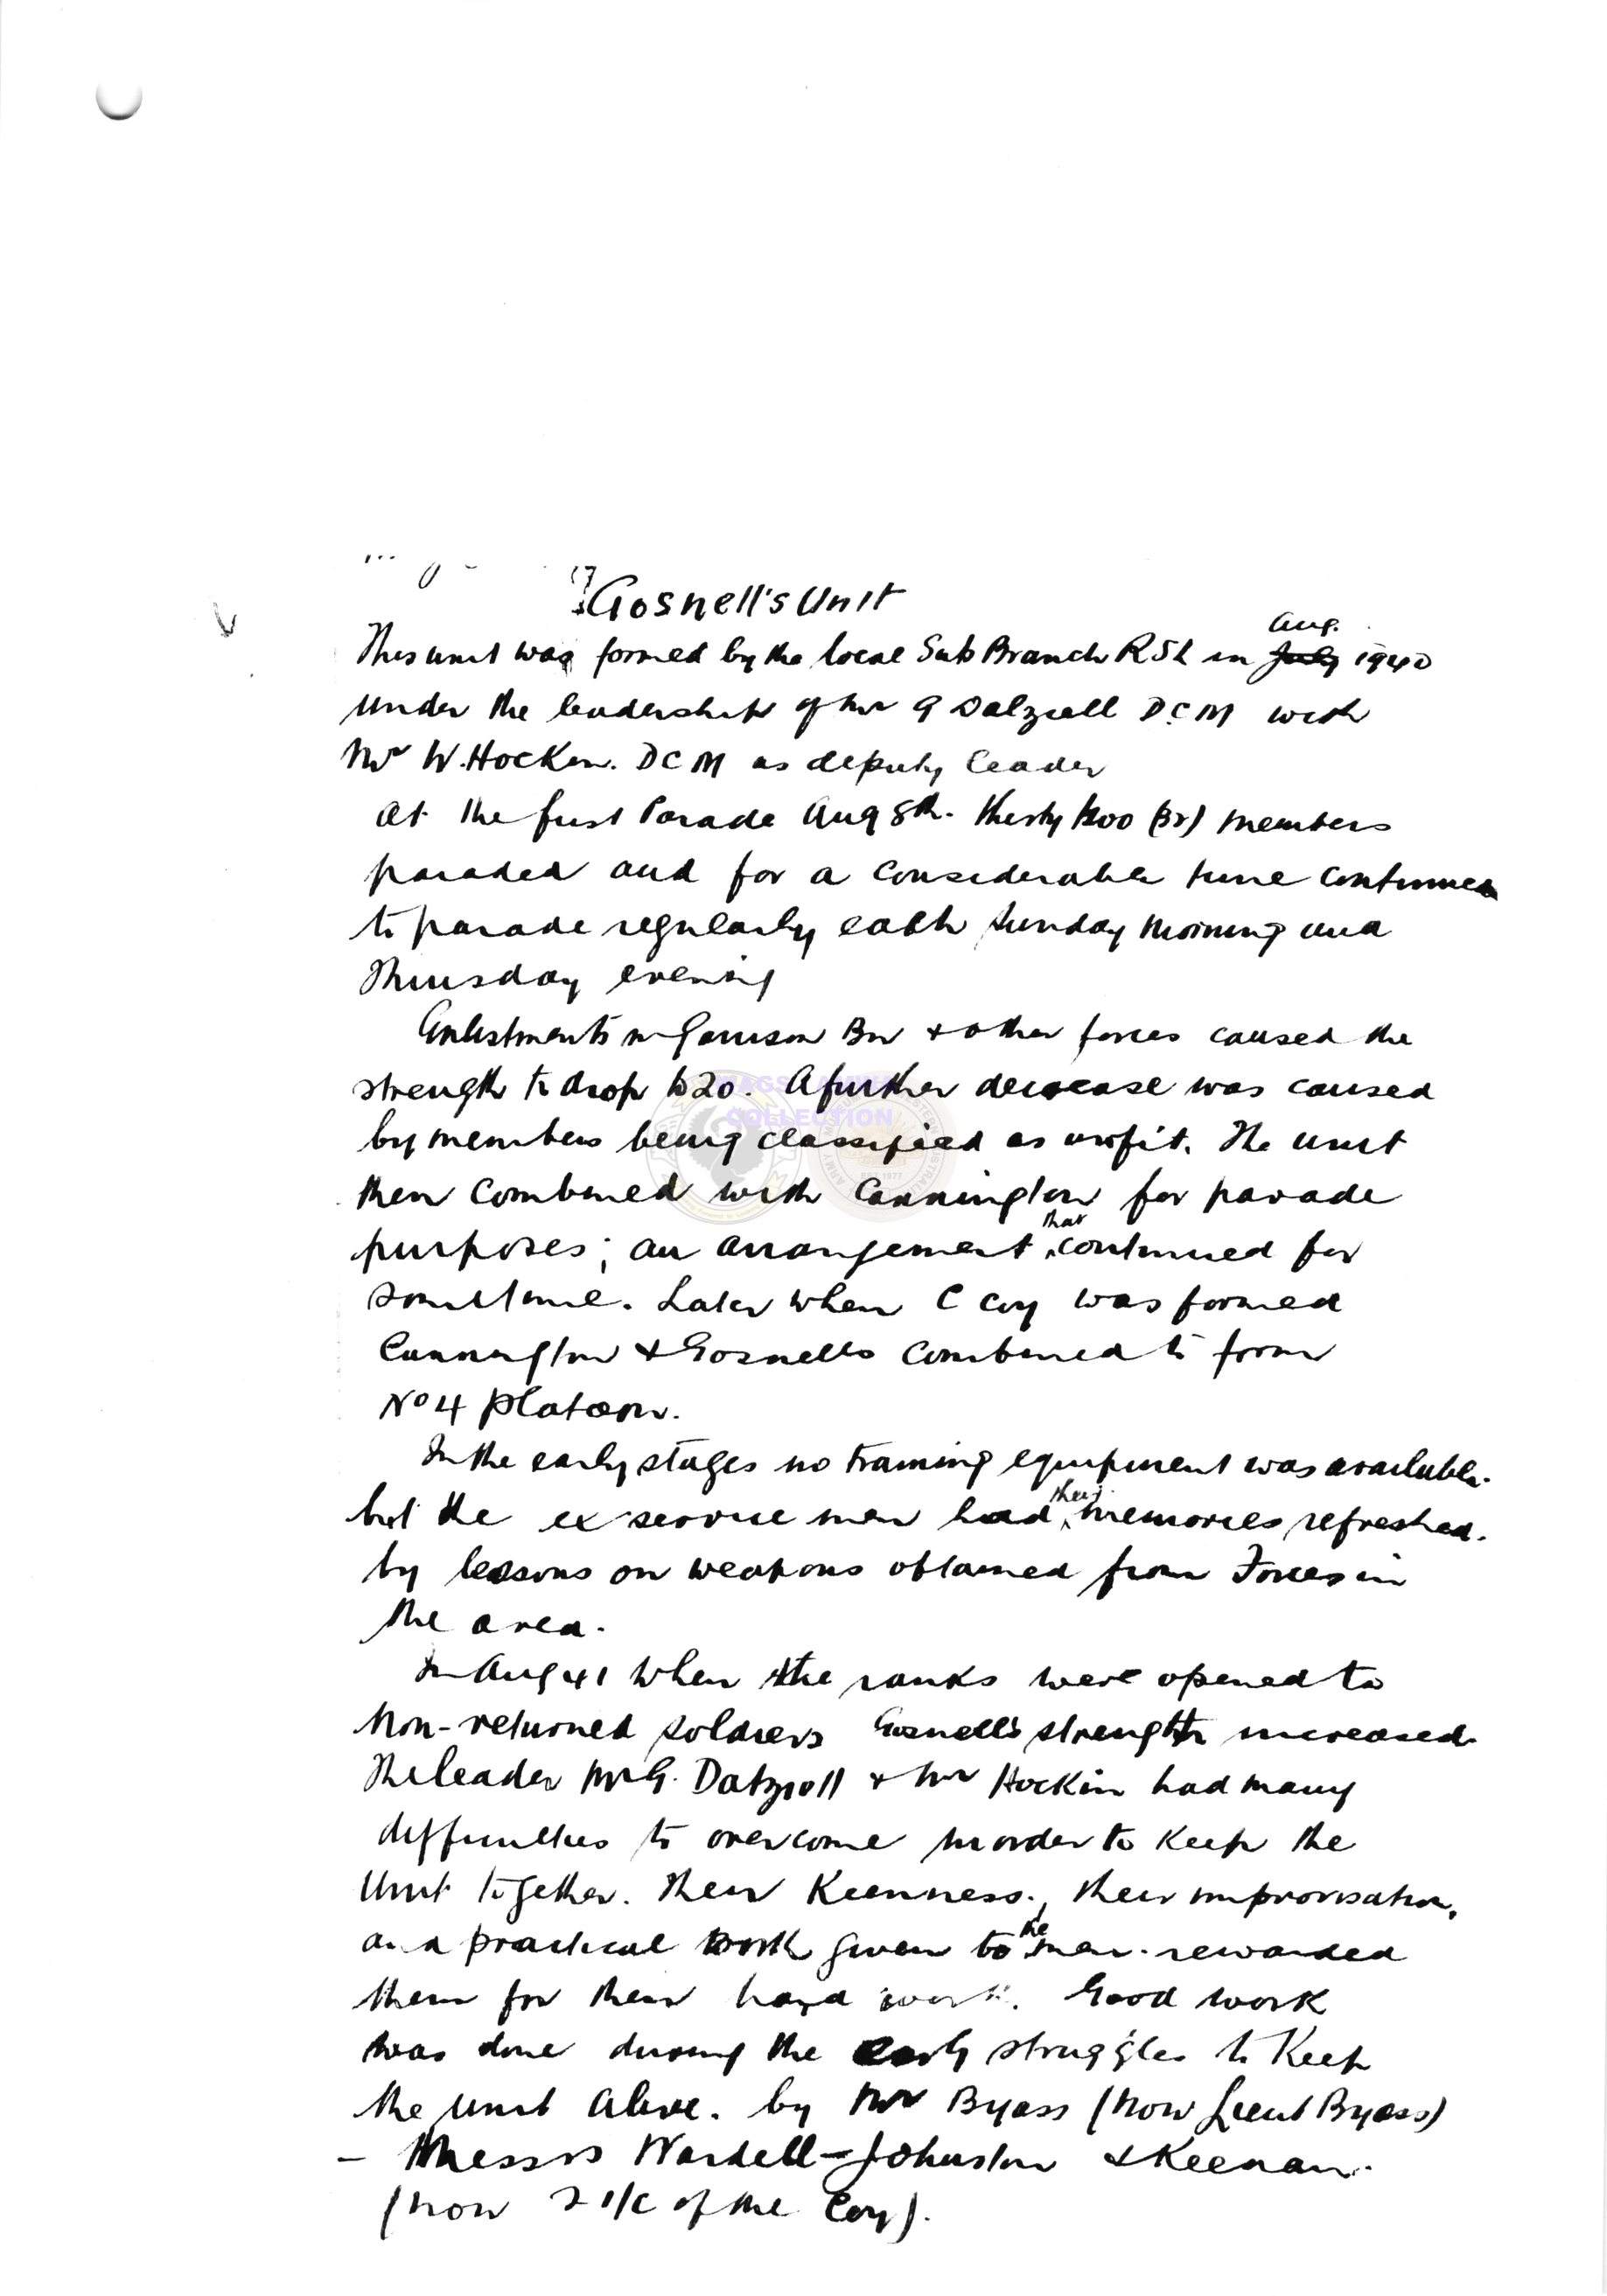 Gosnell's Unit
Aug.
This unit was formed by the local Sub Branch RSL in July 1940
under the leadership of Mr G Dalziell DCM with
Mr W. Hocken. DCM as deputy leader
At the first Parade Aug 8th. thirty two (32) members
paraded and for a considerable time continued
to parade regularly each Sunday morning and
Thursday evening
Enlistments in Garrison Bn & other forces caused the
strength to drop to 20. A further decrease was caused
by members being classified as unfit. The unit
then combined with Cannington for parade
purposes; an arrangement that continued for
sometime. Later when C Coy was formed
Cannington & Gosnells combined to form
No 4 Platoon.
In the early stages no training equipment was available.
but the ex service men had their memories refreshed.
by lessons on weapons obtained from Forces in
the area.
In Aug 41 when the ranks were opened to
Non-returned soldiers Gosnell's strength increased.
The leader Mr G. Dalziell & Mr Hockin had many
difficulties to overcome in order to keep the
Unit together. Their Keenness, their improvisation,
and practical work given to the men. rewarded
them for their hard work. Good work
was done during the early struggles to Keep
the unit alive. by Mr Byass (now Lieut Byass)
- Messrs Wardell-Johnston & Keenan.
(now 2 I/C of the Coy).
MAGS
COLLECTION